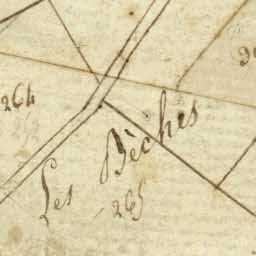 264
Les Bèches
265